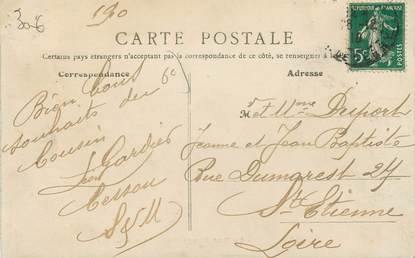 306
190
CARTE POSTALE
Certains pays étrangers n'acceptant pas la correspondance de ce côté, se renseigner
Correspondance
Adresse
REPUBLIQUE FRANÇAISE
5c
POSTES
6c
Bien bons
souhaits du
Cousin
Léon Cardier
Cesson
S&M
Mr et Mme Duport
Jeanne et Jean Baptiste
Rue Dumarest 24
St Etienne
Loire